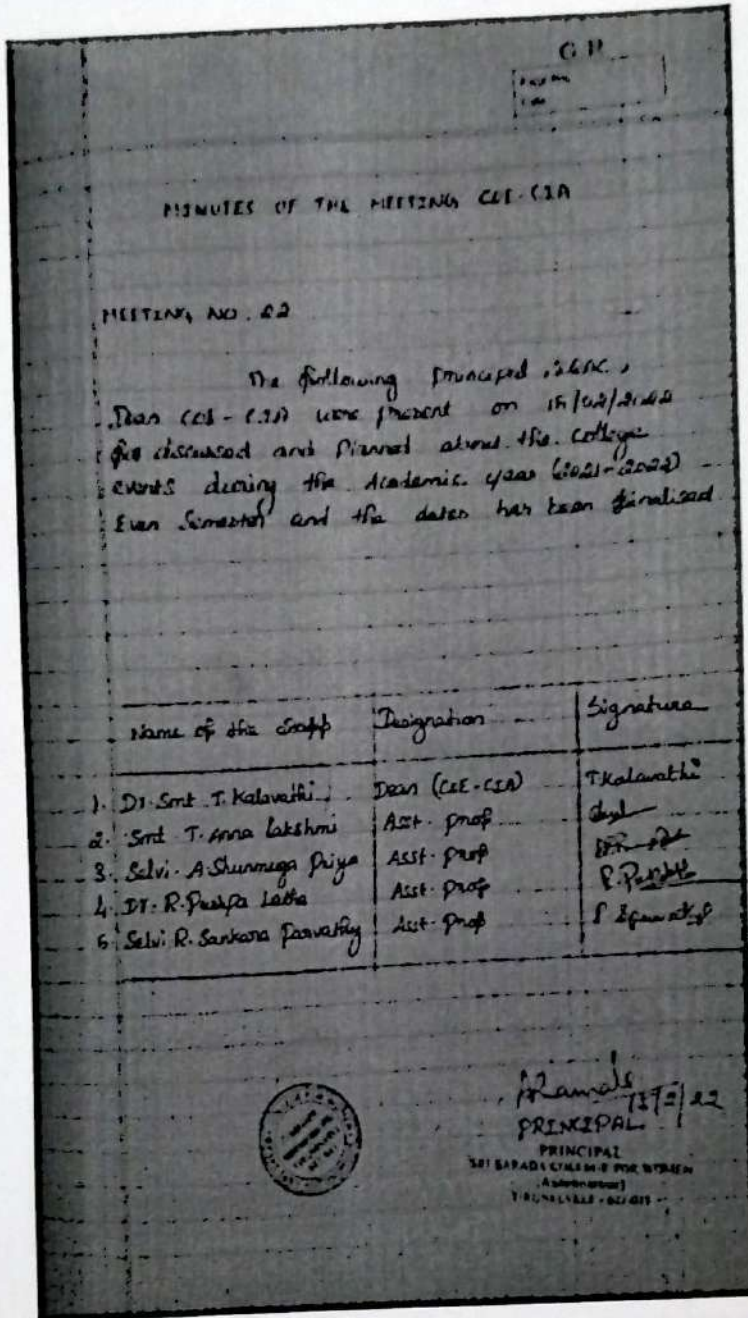 MINUTES OF THE MEETING COE-CIA
MEETING NO. 02
The following Principal,
Dean COE-CIA were present on
discussed and Planned about the College
events during the Academic year (2021-2022)
Even Semester and the dates has been finalised
Name of the Staff Designation Signature
1. Dr. Smt. T. Kalavathi Dean (COE-CIA) T.Kalavathi
2. Smt T. Anna Lakshmi Asst. Prof
3. Selvi. A. Shunmuga Priya Asst. Prof
4. Dr. R. Pushpa Latha Asst. Prof
5. Selvi R. Sankara Parvathy Asst. Prof
PRINCIPAL
PRINCIPAL
SRI SARADA COLLEGE FOR WOMEN
(Autonomous)